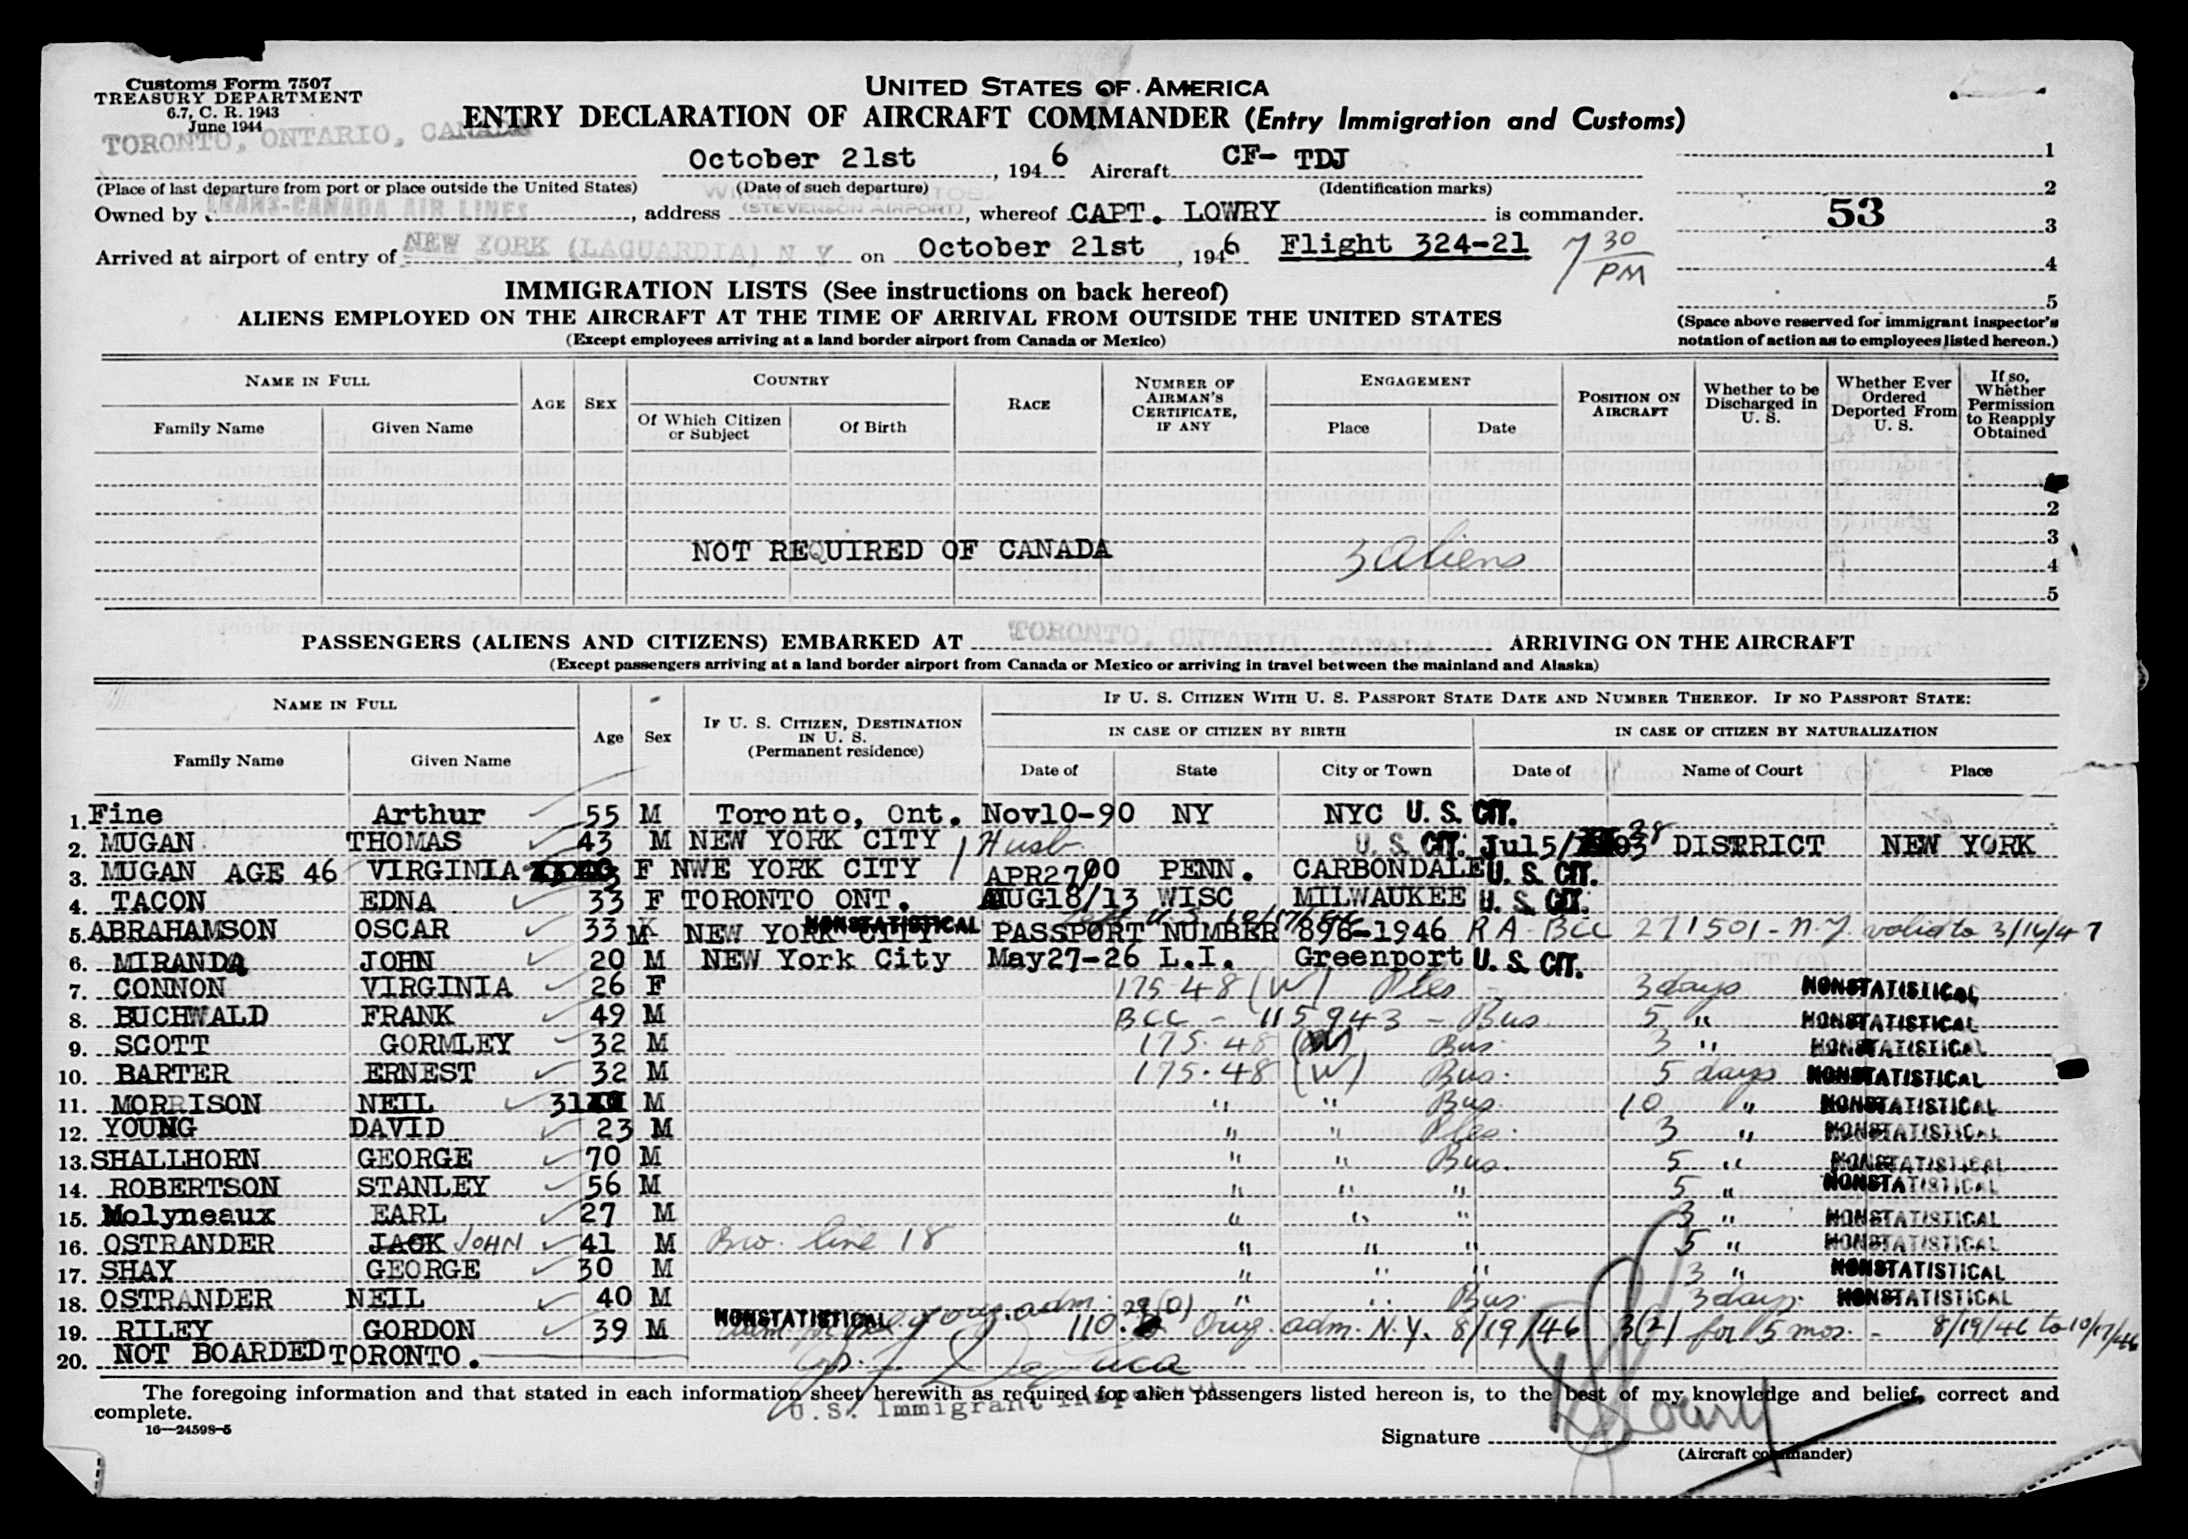 Customs Form 7507
TREASURY DEPARTMENT
6.7, C. R. 1943
June 1944
UNITED STATES OF AMERICA
ENTRY DECLARATION OF AIRCRAFT COMMANDER (Entry Immigration and Customs)
TORONTO, ONTARIO, CANADA
October 21st, 1946 Aircraft CF- TDJ
(Place of last departure from port or place outside the United States) (Date of such departure) (Identification marks)
Owned by TRANS-CANADA AIR LINES, address WINNIPEG, MANITOBA (STEVENSON AIRPORT), whereof CAPT. LOWRY is commander.
Arrived at airport of entry of NEW YORK (LAGUARDIA) N Y on October 21st, 1946 Flight 324-21 7 30 PM
1
2
53
3
4
5
(Space above reserved for immigrant inspector's notation of action as to employees listed hereon.)
IMMIGRATION LISTS (See instructions on back hereof)
ALIENS EMPLOYED ON THE AIRCRAFT AT THE TIME OF ARRIVAL FROM OUTSIDE THE UNITED STATES
(Except employees arriving at a land border airport from Canada or Mexico)
NAME IN FULL
Family Name Given Name
AGE SEX
COUNTRY
Of Which Citizen or Subject Of Birth
RACE
NUMBER OF AIRMAN'S CERTIFICATE, IF ANY
ENGAGEMENT
Place Date
POSITION ON AIRCRAFT
Whether to be Discharged in U. S.
Whether Ever Ordered Deported From U. S.
If so, Whether Permission to Reapply Obtained
2
3
NOT REQUIRED OF CANADA 3 aliens
4
5
PASSENGERS (ALIENS AND CITIZENS) EMBARKED AT TORONTO, ONTARIO, CANADA ARRIVING ON THE AIRCRAFT
(Except passengers arriving at a land border airport from Canada or Mexico or arriving in travel between the mainland and Alaska)
NAME IN FULL
Family Name Given Name
Age Sex
IF U. S. CITIZEN, DESTINATION IN U. S. (Permanent residence)
IF U. S. CITIZEN WITH U. S. PASSPORT STATE DATE AND NUMBER THEREOF. IF NO PASSPORT STATE:
IN CASE OF CITIZEN BY BIRTH IN CASE OF CITIZEN BY NATURALIZATION
Date of State City or Town Date of Name of Court Place
1. Fine Arthur 55 M Toronto, Ont. Nov10-90 NY NYC U. S. CIT.
2. MUGAN THOMAS 43 M NEW YORK CITY Husb U. S. CIT. Jul5/ 03 28 DISTRICT NEW YORK
3. MUGAN AGE 46 VIRGINIA F NWE YORK CITY APR27/00 PENN. CARBONDALE U. S. CIT.
4. TACON EDNA 33 F TORONTO ONT. AUG18/13 WISC MILWAUKEE U. S. CIT.
5. ABRAHAMSON OSCAR 33 M NEW YORK CITY NONSTATISTICAL PASSPORT NUMBER 896-1946 RA-BCC 271501-N.Y. valid to 3/16/47
6. MIRANDA JOHN 20 M NEW York City May27-26 L.I. Greenport U. S. CIT.
7. CONNON VIRGINIA 26 F 175.48 (W) Ples 3 days NONSTATISTICAL
8. BUCHWALD FRANK 49 M BCC - 115943 - Bus 5 " NONSTATISTICAL
9. SCOTT GORMLEY 32 M 175.48 (W) Bus. 3 " NONSTATISTICAL
10. BARTER ERNEST 32 M 175.48 (W) Bus. 5 days NONSTATISTICAL
11. MORRISON NEIL 31 M " " Bus. 10 " NONSTATISTICAL
12. YOUNG DAVID 23 M " " Ples. 3 " NONSTATISTICAL
13. SHALLHORN GEORGE 70 M " " Bus. 5 " NONSTATISTICAL
14. ROBERTSON STANLEY 56 M " " " 5 " NONSTATISTICAL
15. Molyneaux EARL 27 M " " " 3 " NONSTATISTICAL
16. OSTRANDER JACK JOHN 41 M Bro. line 18 " " " 5 " NONSTATISTICAL
17. SHAY GEORGE 30 M " " " 3 " NONSTATISTICAL
18. OSTRANDER NEIL 40 M " " Bus. 3 days. NONSTATISTICAL
19. RILEY GORDON 39 M NONSTATISTICAL orig. adm. 110. 29(a) Orig. adm. N.Y. 8/19/46 3(2) for 5 mos. - 8/19/46 to 10/17/46
20. NOT BOARDED TORONTO.
U.S. Immigrant Inspector
The foregoing information and that stated in each information sheet herewith as required for alien passengers listed hereon is, to the best of my knowledge and belief, correct and
complete.
16—24598-5
Signature Lowry
(Aircraft commander)